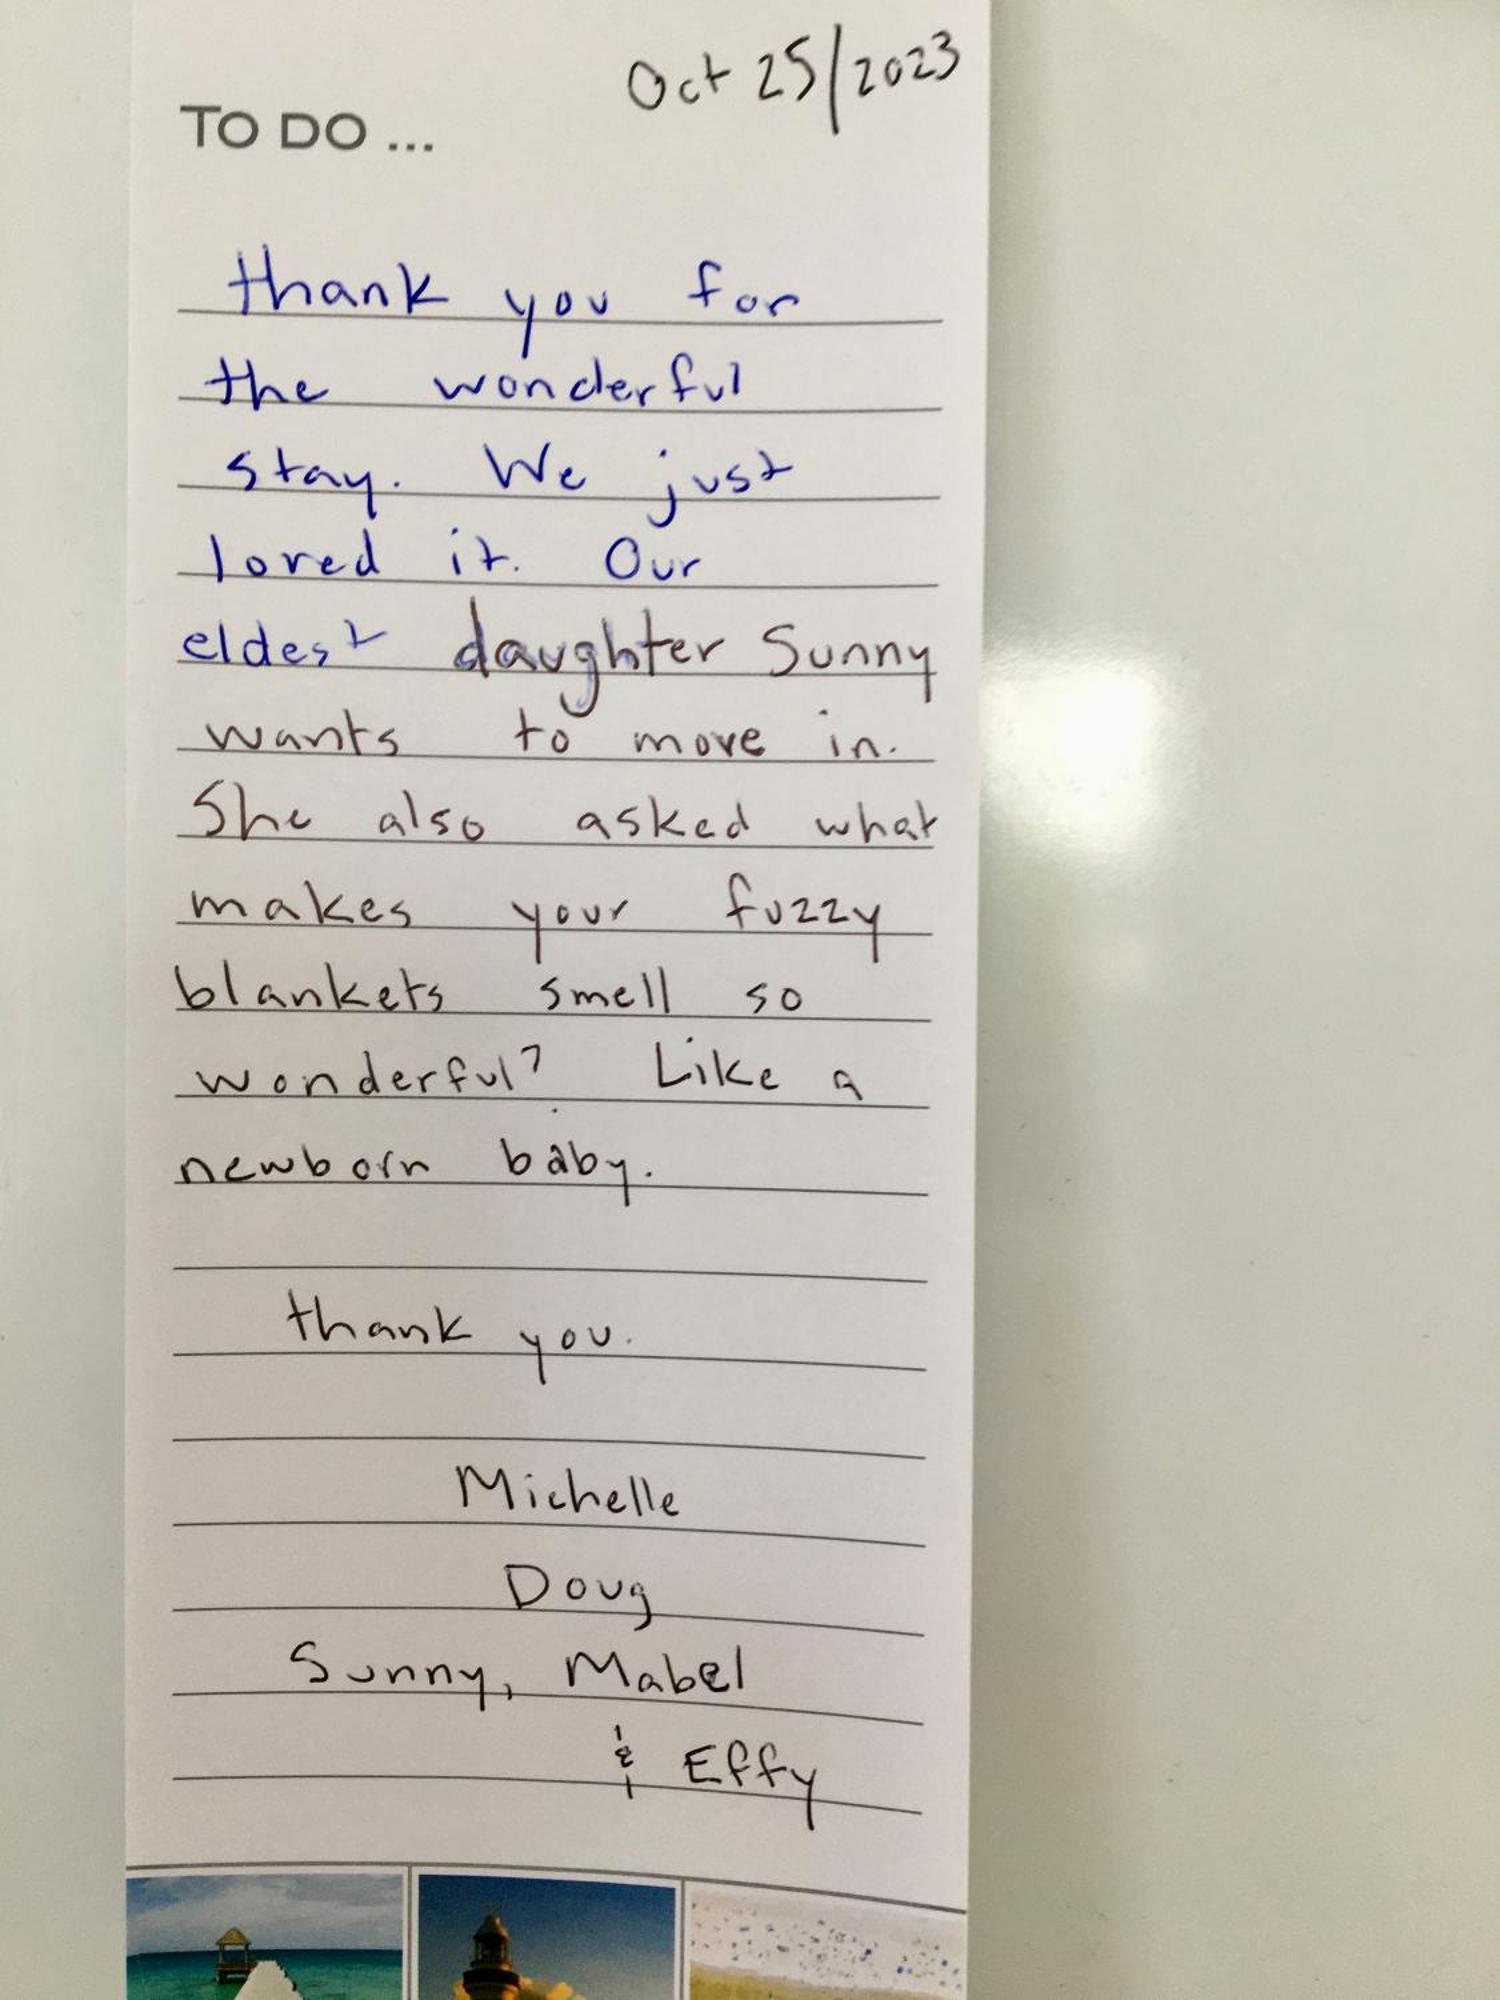 Oct 25/2023
TO DO ...
thank you for
the wonderful
stay. We just
loved it. Our
eldest daughter Sunny
wants to move in.
She also asked what
makes your fuzzy
blankets smell so
wonderful? Like a
newborn baby.
thank you.
Michelle
Doug
Sunny, Mabel
& Effy